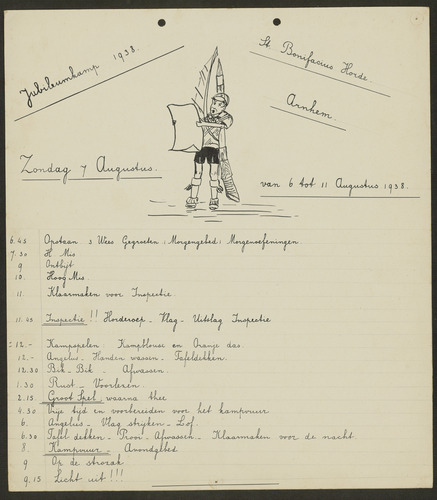 Jubileumkamp 1938.
St. Bonifacius Horde.
Arnhem.
Zondag 7 Augustus.
van 6 tot 11 Augustus 1938.
6.45 Opstaan 3 Wees Gegroeten; Morgengebed; Morgenoefeningen.
7.30 H. Mis
9 Ontbijt.
10. Hoog Mis.
11. Klaarmaken voor Inspectie.
11.45 Inspectie!! Horderoep - Vlag - Uitslag Inspectie
12.- Kampspelen: Kampblouse en Oranje das.
12.- Angelus - Handen wassen - Tafeldekken.
12.30 Bik - Bik - Afwassen.
1.30 Rust - Voorlezen.
2.15 Groot Spel, waarna thee
4.30 Vrije tijd en voorbereiden voor het kampvuur
6. Angelus - Vlag strijken - Lof.
6.30 Tafel dekken - Prooi - Afwassen - Klaarmaken voor de nacht.
8. Kampvuur - Avondgebed
9 Op de strozak
9.15 Licht uit!!!